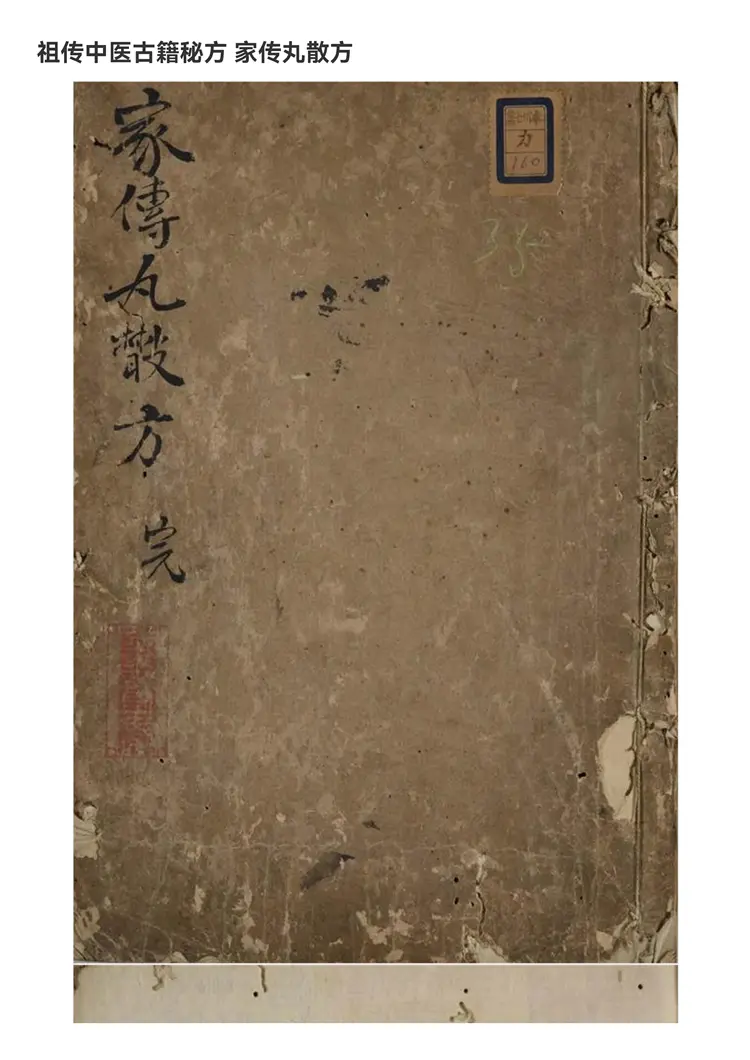 祖传中医古籍秘方 家传丸散方
家傳丸散方
完
カ
160